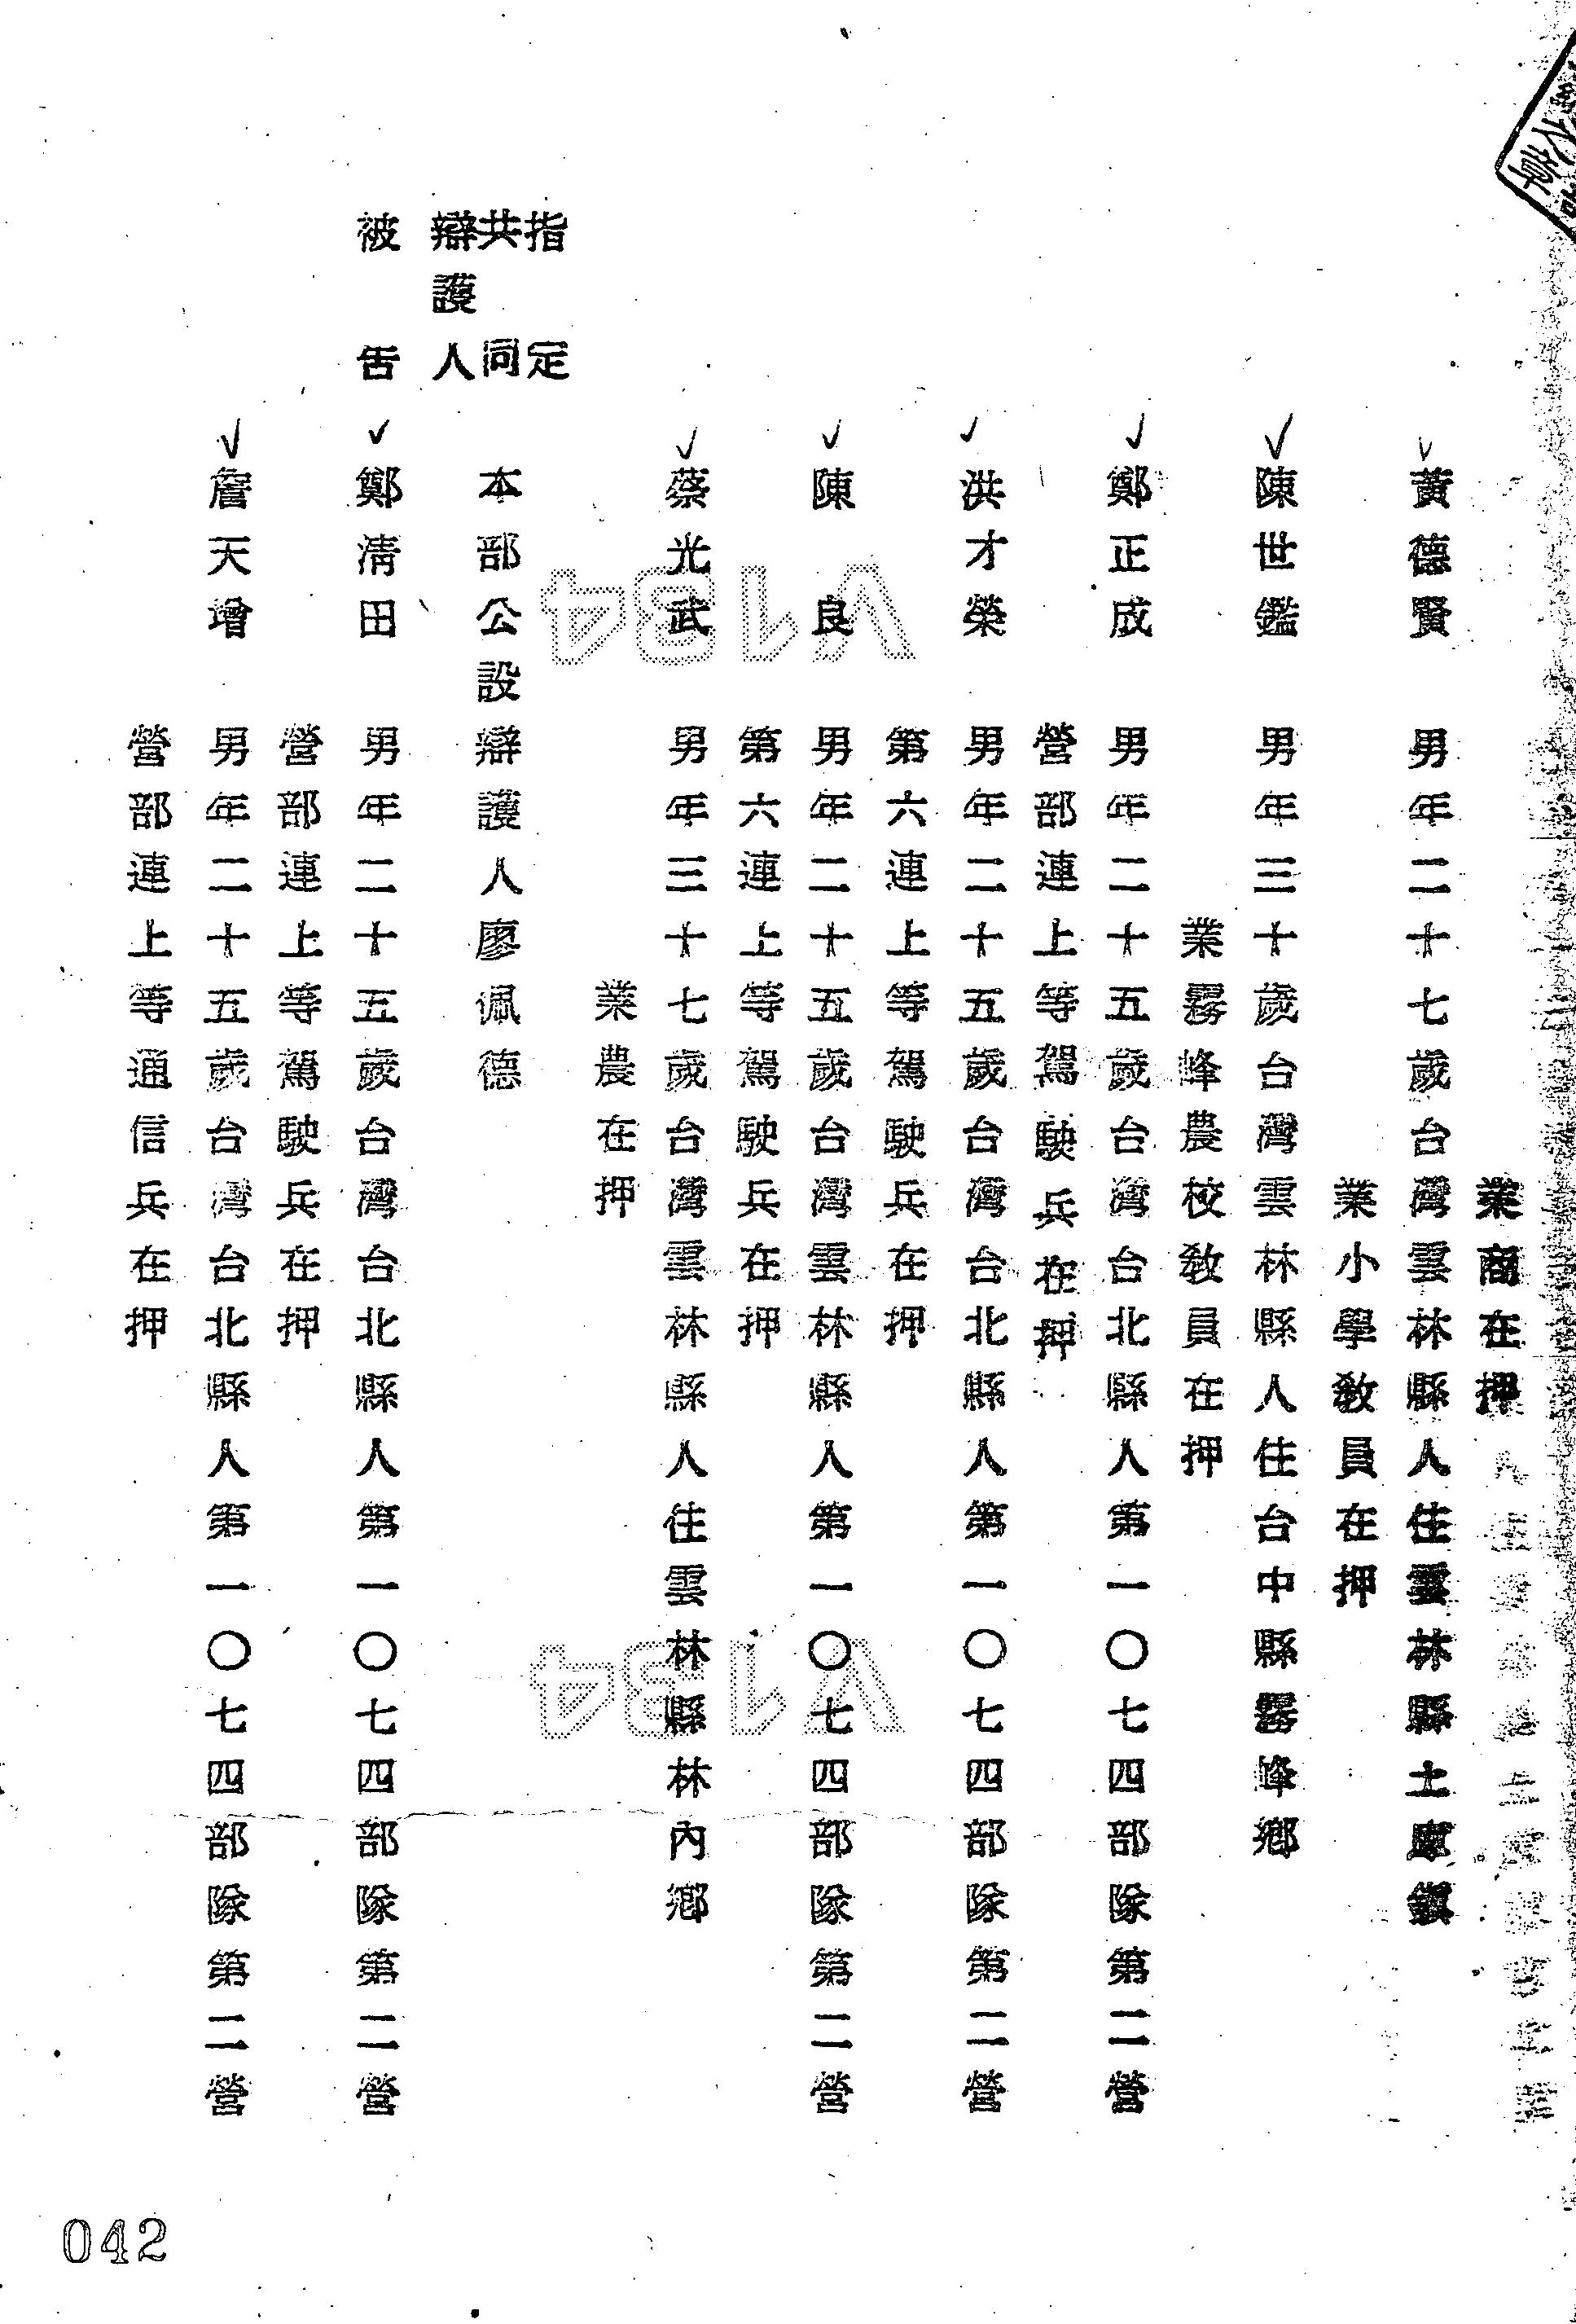 業商在押
黃德賢 男年二十七歲台灣雲林縣人住雲林縣土庫鎮
業小學教員在押
陳世鑑 男年三十歲台灣雲林縣人住台中縣霧峰鄉
業霧峰農校教員在押
鄭正成 男年二十五歲台灣台北縣人第一〇七四部隊第二營
營部連上等駕駛兵在押
洪才榮 男年二十五歲台灣台北縣人第一〇七四部隊第二營
第六連上等駕駛兵在押
陳良 男年二十五歲台灣雲林縣人第一〇七四部隊第二營
第六連上等駕駛兵在押
蔡光武 男年三十七歲台灣雲林縣人住雲林縣林內鄉
業農在押
指定
共同
辯護人 本部公設辯護人廖佩德
被告 鄭清田 男年二十五歲台灣台北縣人第一〇七四部隊第二營
營部連上等駕駛兵在押
詹天增 男年二十五歲台灣台北縣人第一〇七四部隊第二營
營部連上等通信兵在押
V134
V134
042